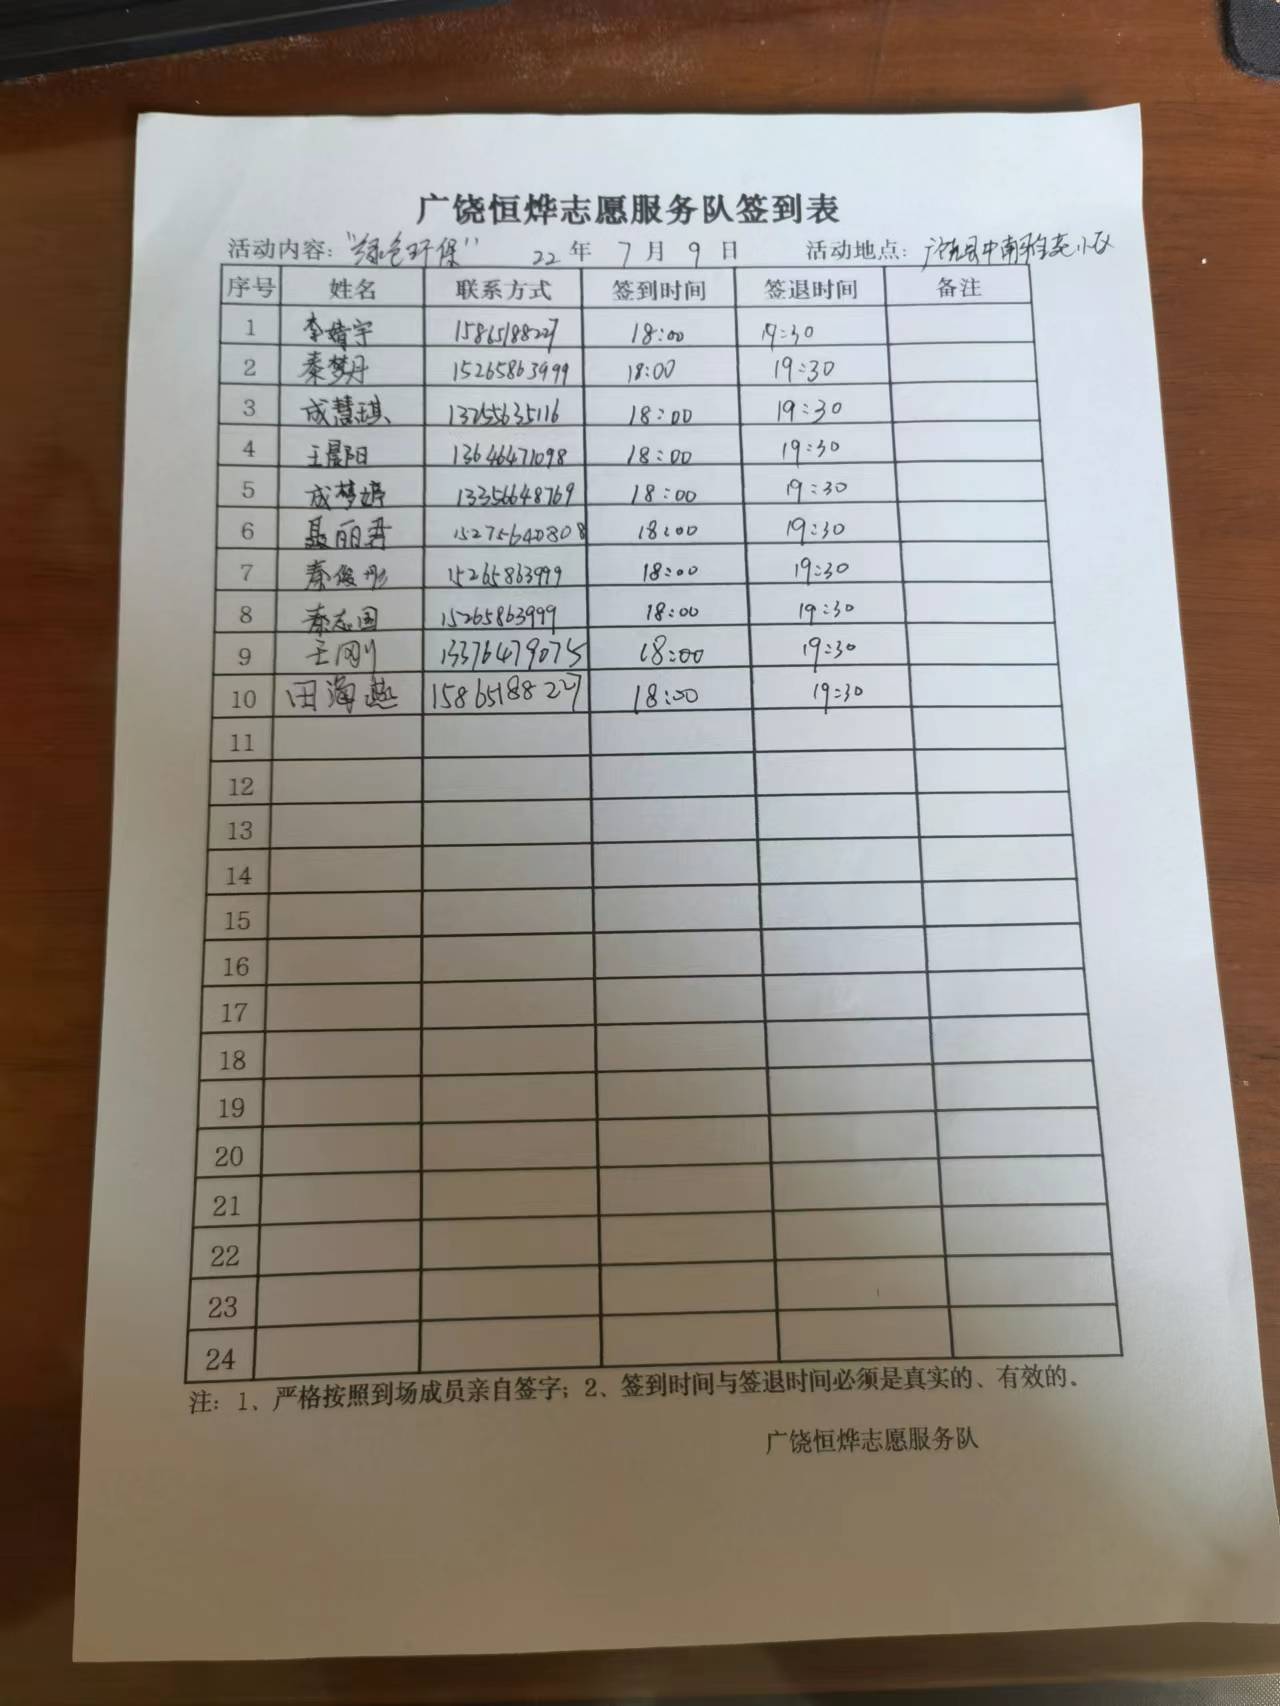 广饶恒烨志愿服务队签到表
活动内容："绿色环保" 22 年 7 月 9 日 活动地点：广饶县中南 小区
序号 姓名 联系方式 签到时间 签退时间 备注
1 李婧宇 15865188227 18:00 19:30
2 秦梦丹 15265863999 18:00 19:30
3 成慧琪 13255635116 18:00 19:30
4 王鄢阳 13646471098 18:00 19:30
5 成梦婷 13356648769 18:00 19:30
6 聂丽君 15275640808 18:00 19:30
7 秦俊彤 15265863999 18:00 19:30
8 秦志国 15265863999 18:00 19:30
9 王刚 13376479075 18:00 19:30
10 田海燕 15865188227 18:00 19:30
11
12
13
14
15
16
17
18
19
20
21
22
23
24
注：1、严格按照到场成员亲自签字；2、签到时间与签退时间必须是真实的、有效的。
广饶恒烨志愿服务队